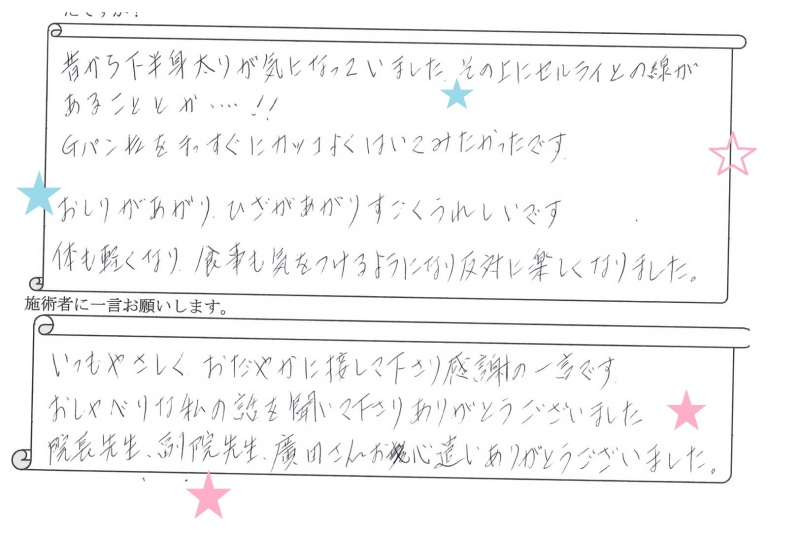 昔から下半身太りが気になっていました。その上にセルライトの線が
あることとが‥‥!!
Gパン等をすぐにカッコよくはいてみたかったです
おしりがあがり、ひざがあがりすごくうれしいです
体も軽くなり、食事も気をつけるようになり反対に楽しくなりました。
施術者に一言お願いします。
いつもやさしく、おだやかに接して下さり感謝の一言です。
おしゃべりな私の話を聞いて下さりありがとうございました
院長先生、副院先生、廣田さんお心遣いありがとうございました。